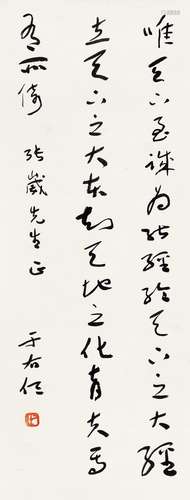 唯天下至誠為能經綸天下之大經
立天下之大本知天地之化育夫焉
有所倚
先生正
于右任